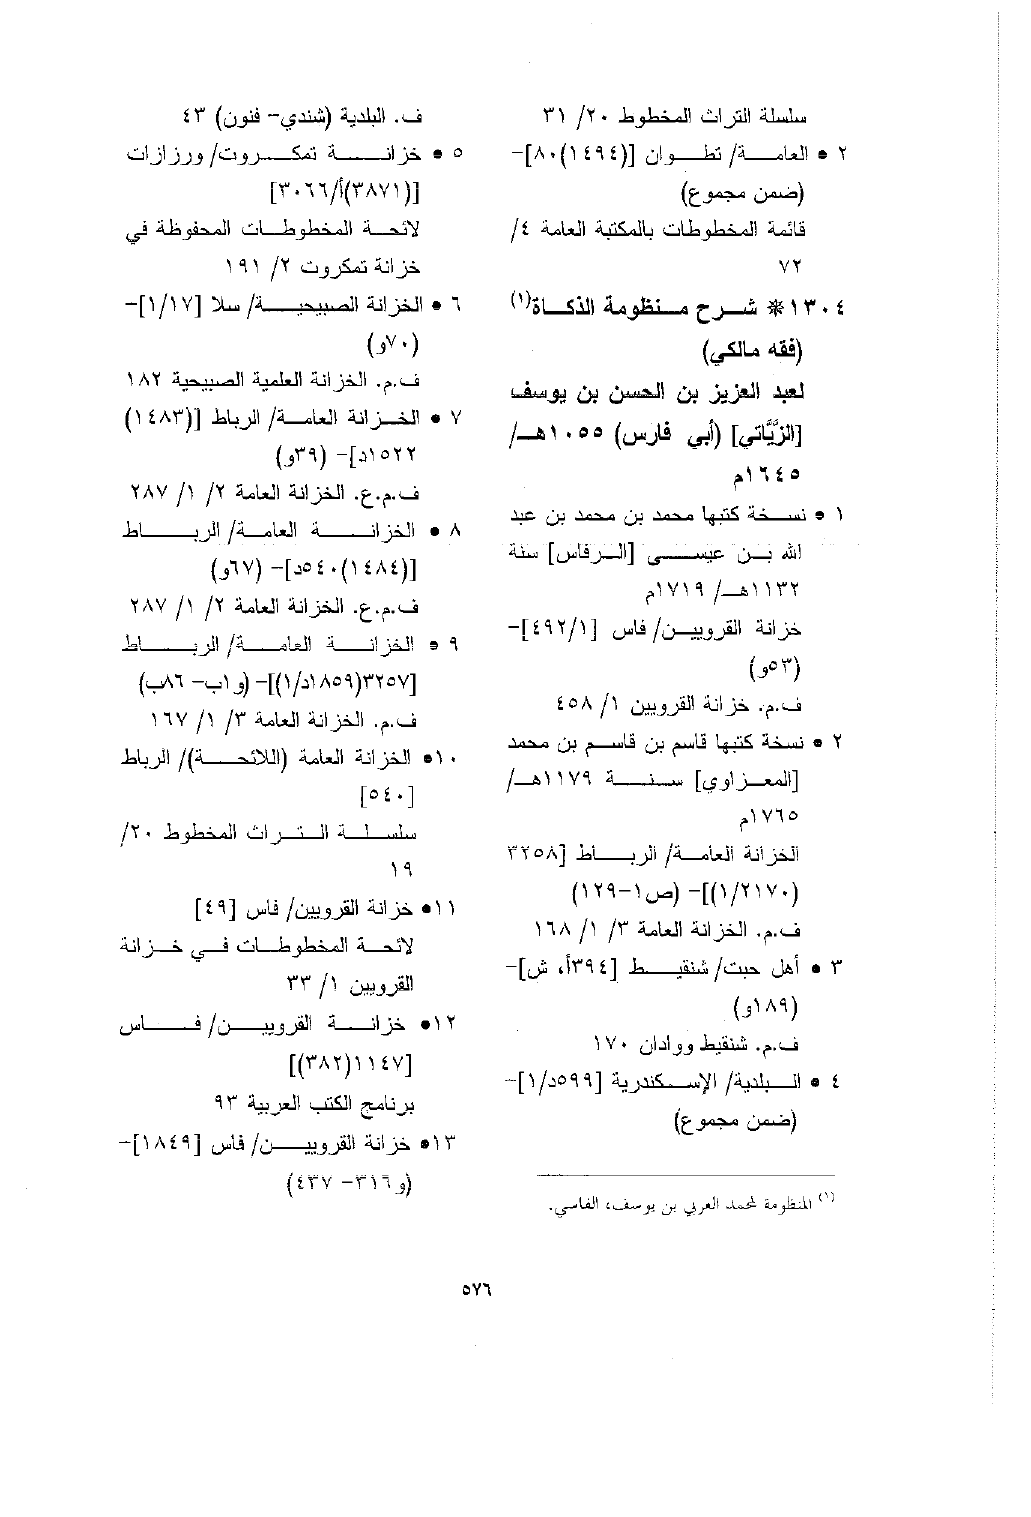 سلسلة التراث المخطوط ٢٠/ ٣١
٢ • العامة/ تطوان [(١٤٩٤)٨٠]-
(ضمن مجموع)
قائمة المخطوطات بالمكتبة العامة ٤/
٧٢
١٣٠٤* شرح منظومة الذكاة(١)
(فقه مالكي)
لعبد العزيز بن الحسن بن يوسف
[الزيَّاتي] (أبي فارس) ١٠٥٥هـ/
١٦٤٥م
١ • نسخة كتبها محمد بن محمد بن عبد
الله بن عيسى [الرفاس] سنة
١١٣٢هـ/ ١٧١٩م
خزانة القرويين/ فاس [٤٩٢/١]-
(٥٣و)
ف.م. خزانة القرويين ١/ ٤٥٨
٢ • نسخة كتبها قاسم بن قاسم بن محمد
[المعزاوي] سنة ١١٧٩هـ/
١٧٦٥م
الخزانة العامة/ الرباط [٣٢٥٨
(١/٢١٧٠)]- (ص١-١٢٩)
ف.م. الخزانة العامة ٣/ ١/ ١٦٨
٣ • أهل حبت/ شنقيط [٣٩٤أ، ش]-
(١٨٩و)
ف.م. شنقيط ووادان ١٧٠
٤ • البلدية/ الإسكندرية [٥٩٩د/١]-
(ضمن مجموع)
(١) المنظومة لمحمد العربي بن يوسف، الفاسي.
ف. البلدية (شندي- فنون) ٤٣
٥ • خزانة تمكروت/ ورزازات
[(٣٨٧١)أ/٣٠٦٦]
لائحة المخطوطات المحفوظة في
خزانة تمكروت ٢/ ١٩١
٦ • الخزانة الصبيحية/ سلا [١/١٧]-
(٧٠و)
ف.م. الخزانة العلمية الصبيحية ١٨٢
٧ • الخزانة العامة/ الرباط [(١٤٨٣)
١٥٢٢د]- (٣٩و)
ف.م.ع. الخزانة العامة ٢/ ١/ ٢٨٧
٨ • الخزانة العامة/ الرباط
[(١٤٨٤)٥٤٠د]- (٦٧و)
ف.م.ع. الخزانة العامة ٢/ ١/ ٢٨٧
٩ • الخزانة العامة/ الرباط
[٣٢٥٧(١٨٥٩د/١)]- (و١ب- ٨٦ب)
ف.م. الخزانة العامة ٣/ ١/ ١٦٧
١٠• الخزانة العامة (اللائحة)/ الرباط
[٥٤٠]
سلسلة التراث المخطوط ٢٠/
١٩
١١• خزانة القرويين/ فاس [٤٩]
لائحة المخطوطات في خزانة
القرويين ١/ ٣٣
١٢• خزانة القرويين/ فاس
[١١٤٧(٣٨٢)]
برنامج الكتب العربية ٩٣
١٣• خزانة القرويين/ فاس [١٨٤٩]-
(و٣١٦- ٤٣٧)
٥٧٦